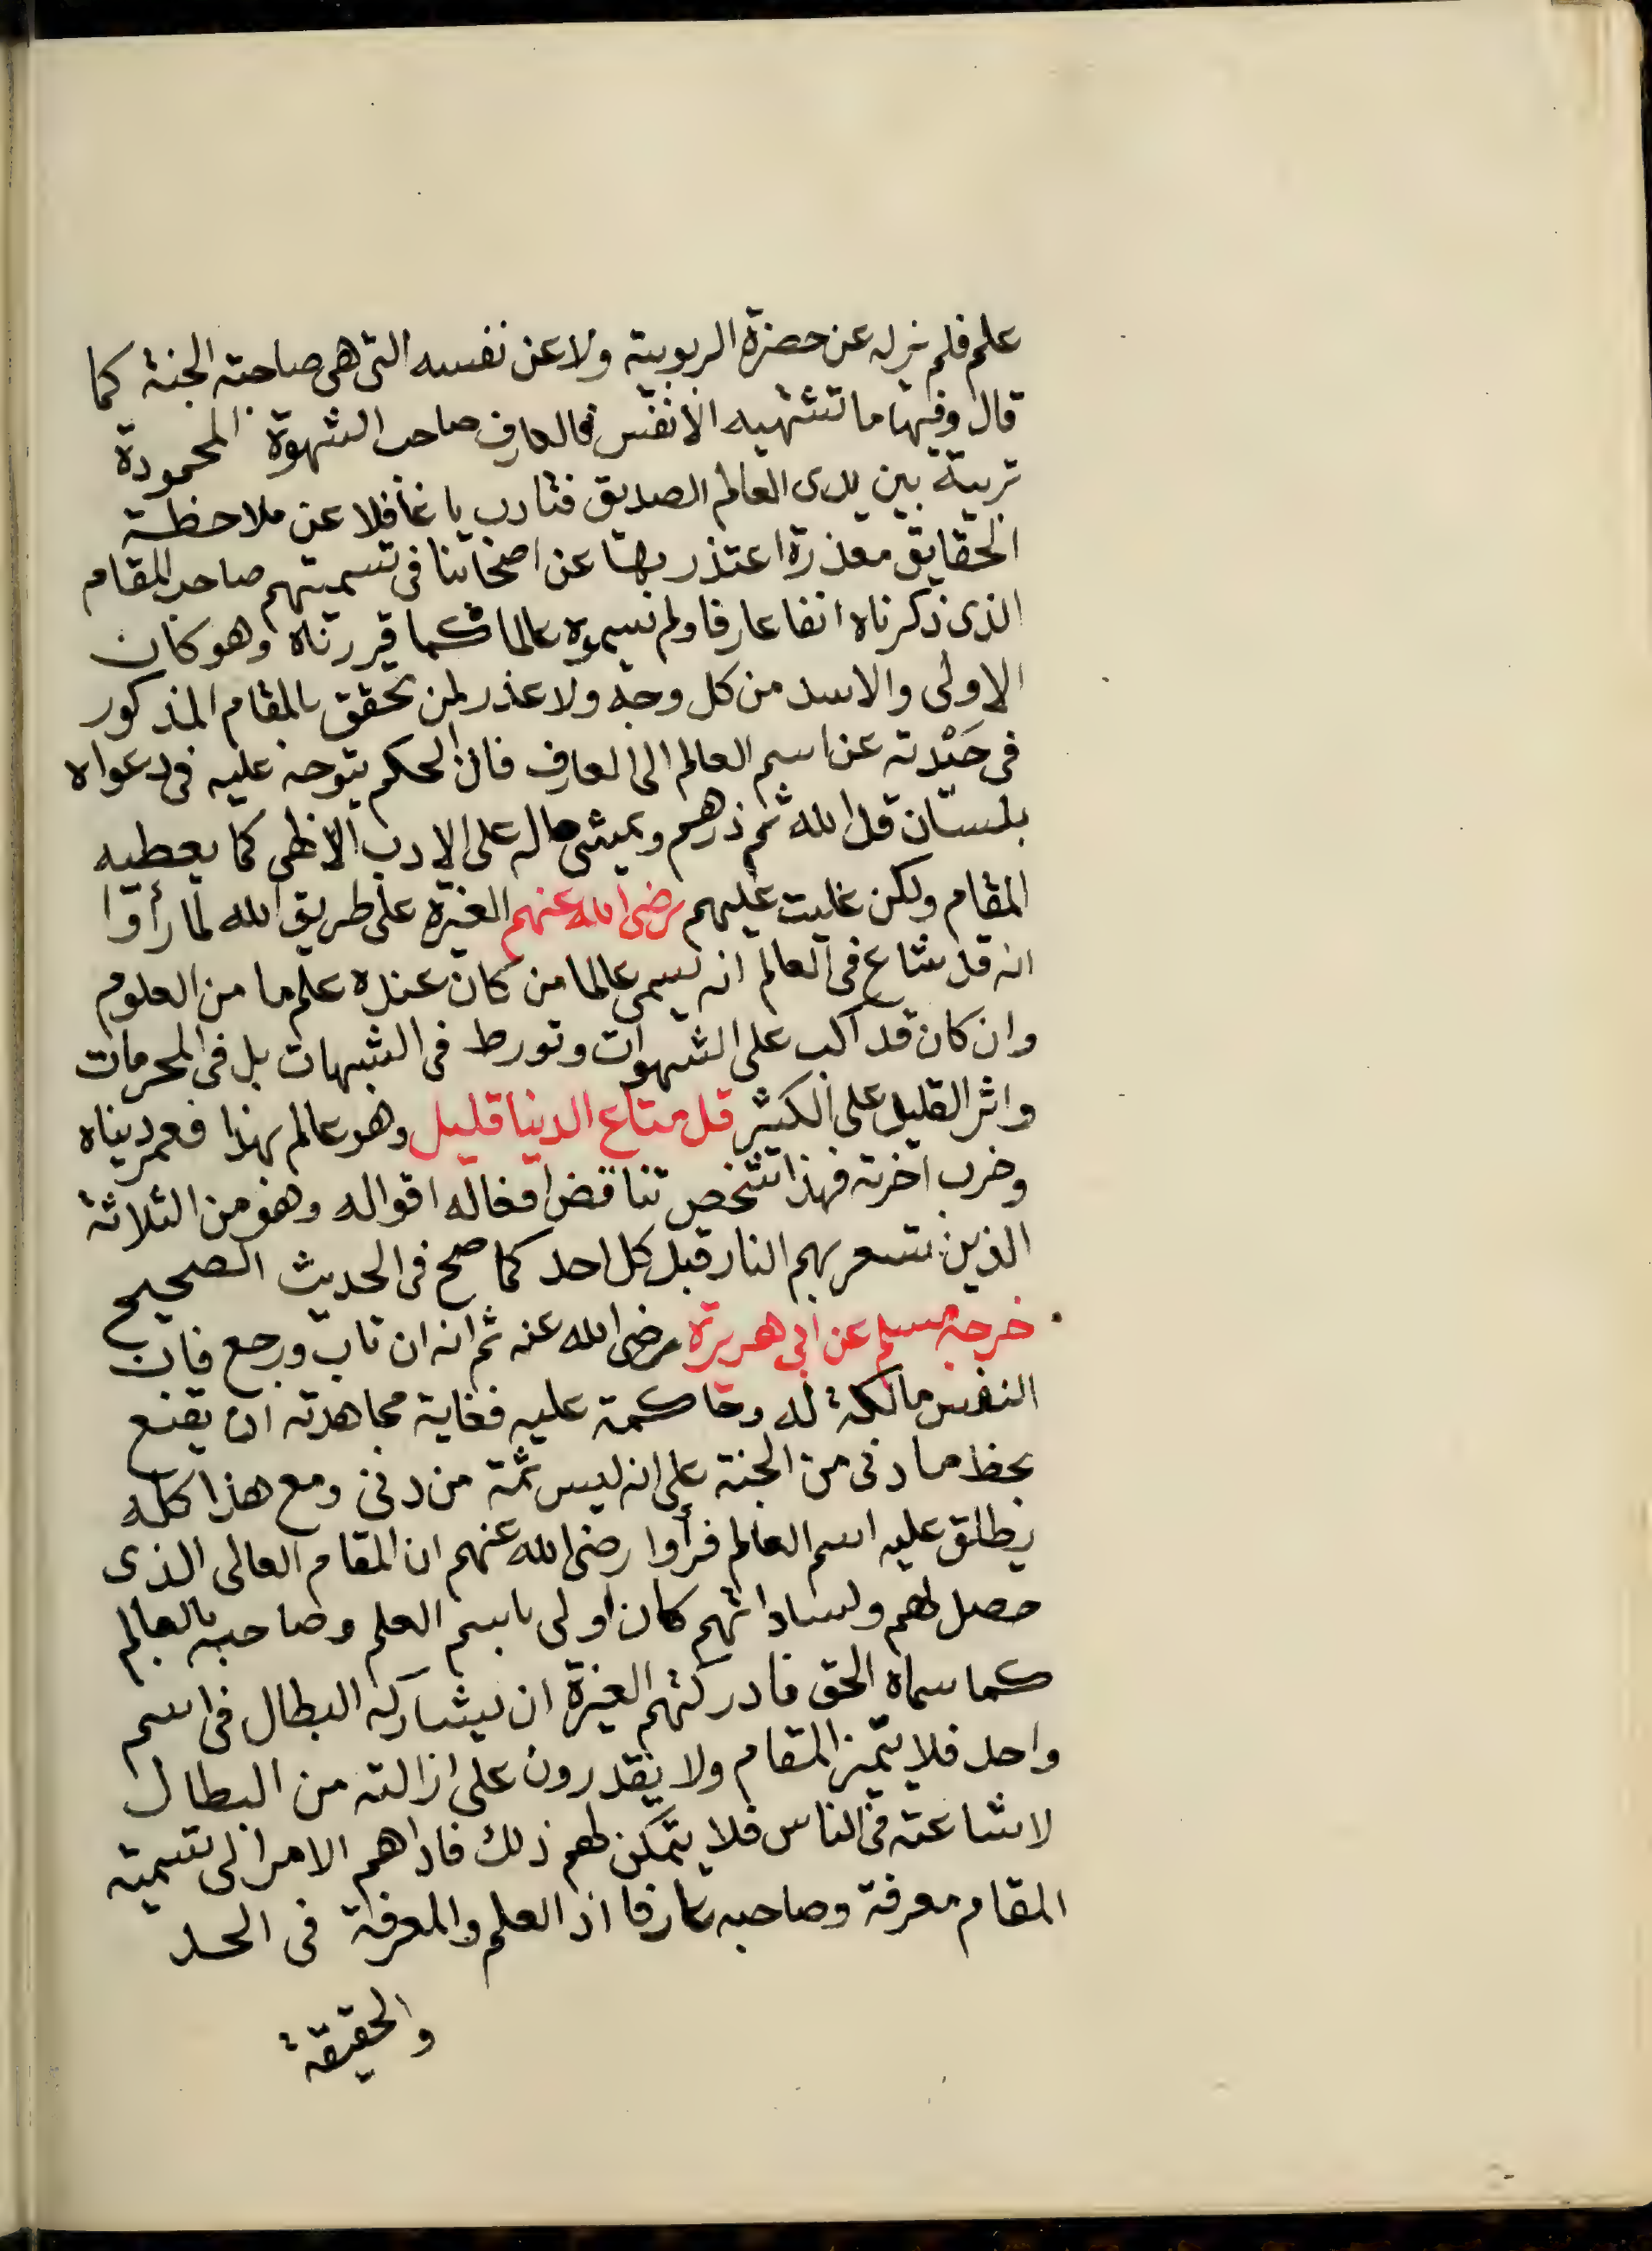 علم فلم يزله عن حضرة الربوبية ولا عن نفسه التى هى صاحبة الجنة كما
قال وفيها ما تشتهيه الانفس فالعارف صاحب الشهوة المحمودة
تربية بين يدى العالم الصديق فتادب يا غافلا عن ملاحظة
الحقايق معذرة اعتذر بها عن اصحابنا فى تسميتهم صاحب المقام
الذى ذكرناه انفا عارفا ولم نسموه عالما كما قررناه وهو كان
الاولى والاسد من كل وجه ولا عذر لمن تحقق بالمقام المذكور
فى حَيْدته عن اسم العالم الى العارف فان الحكم يتوجه عليه فى دعواه
بلسان قل الله ثم ذرهم ويمشى حاله على الادب الالهى كما يعطيه
المقام ولكن غلبت عليهم رضى الله عنهم الغيرة على طريق الله لما رأوا
انه قد شاع فى العالم انه يسمى عالما من كان عنده علم ما من العلوم
وان كان قد اكب على الشهوات وتورط فى الشبهات بل فى المحرمات
واثر القليل على الكثير قل متاع الدنيا قليل وهو عالم بهذا فعمر دنياه
وخرب اخرته فهذا شخص تناقض افعاله اقواله وهو من الثلاثة
الذين تسعر بهم النار قبل كل احد كما صح فى الحديث الصحيح
خرجه مسلم عن ابى هريرة رضى الله عنه ثم انه ان تاب ورجع فان
النفس مالكة له وحاكمة عليه فغاية مجاهدته ان يقنع
بحظ ما دنى من الجنة على انه ليس ثمة من دنى ومع هذا كله
يطلق عليه اسم العالم فرأوا رضى الله عنهم ان المقام العالى الذى
حصل لهم ولساداتهم كان اولى باسم العلم وصاحبه بالعالم
كما سماه الحق فادركتهم الغيرة ان يشاركه البطال فى اسم
واحد فلا يتميز المقام ولا يقدرون على ازالته من البطال
لاشاعته فى الناس فلا يتمكن لهم ذلك فاداهم الامر الى تسمية
المقام معرفة وصاحبه عارفا اذ العلم والمعرفة فى الحد
والحقيقة